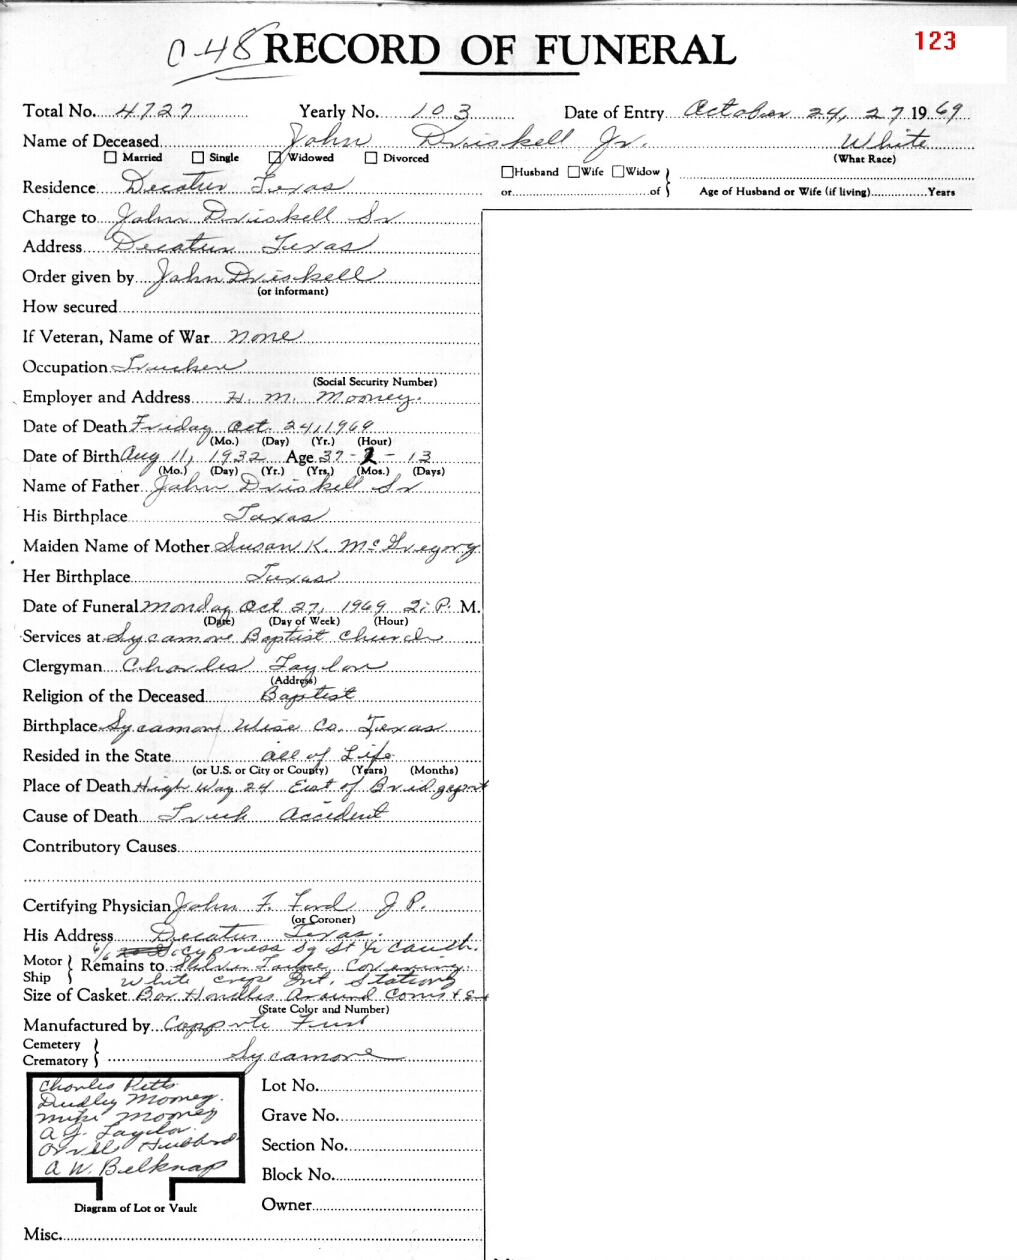 C-48 RECORD OF FUNERAL 123
Total No. 4727 Yearly No. 103 Date of Entry October 24, 27 1969
Name of Deceased John Driskell Jr. White
Married Single Widowed Divorced (What Race)
Husband Wife Widow
Residence Decatur Texas or of Age of Husband or Wife (if living) Years
Charge to John Driskell Sr
Address Decatur Texas
Order given by John Driskell
(or informant)
How secured
If Veteran, Name of War none
Occupation Trucker
(Social Security Number)
Employer and Address H. M. Mooney.
Date of Death Friday Oct. 24, 1969
(Mo.) (Day) (Yr.) (Hour)
Date of Birth Aug 11, 1932 Age 37 - 2 - 13
(Mo.) (Day) (Yr.) (Yrs,) (Mos.) (Days)
Name of Father John Driskell Sr
His Birthplace Texas
Maiden Name of Mother Susan K. McGregory
Her Birthplace Texas
Date of Funeral Monday Oct 27, 1969 2: P. M.
(Date) (Day of Week) (Hour)
Services at Sycamore Baptist Church
Clergyman Charles Taylor
(Address)
Religion of the Deceased Baptist
Birthplace Sycamore Wise Co. Texas
Resided in the State all of Life
(or U.S. or City or County) (Years) (Months)
Place of Death High Way 24 East of Bridgeport
Cause of Death Truck Accident
Contributory Causes
Certifying Physician John F. Ford J P.
(or Coroner)
His Address Decatur Texas.
6/6 Cypress Sq St
Motor Ship Remains to Silver Covering
White crepe Int. Stationary
Size of Casket Bar Handles Around Corns + E
(State Color and Number)
Manufactured by
Cemetery
Crematory Sycamore
Charles Pitts
Dudley Mooney.
Mike Mooney
A. J. Taylor.
Orvell Hubbard
A W. Belknap
Lot No.
Grave No.
Section No.
Block No.
Owner
Diagram of Lot or Vault
Misc.